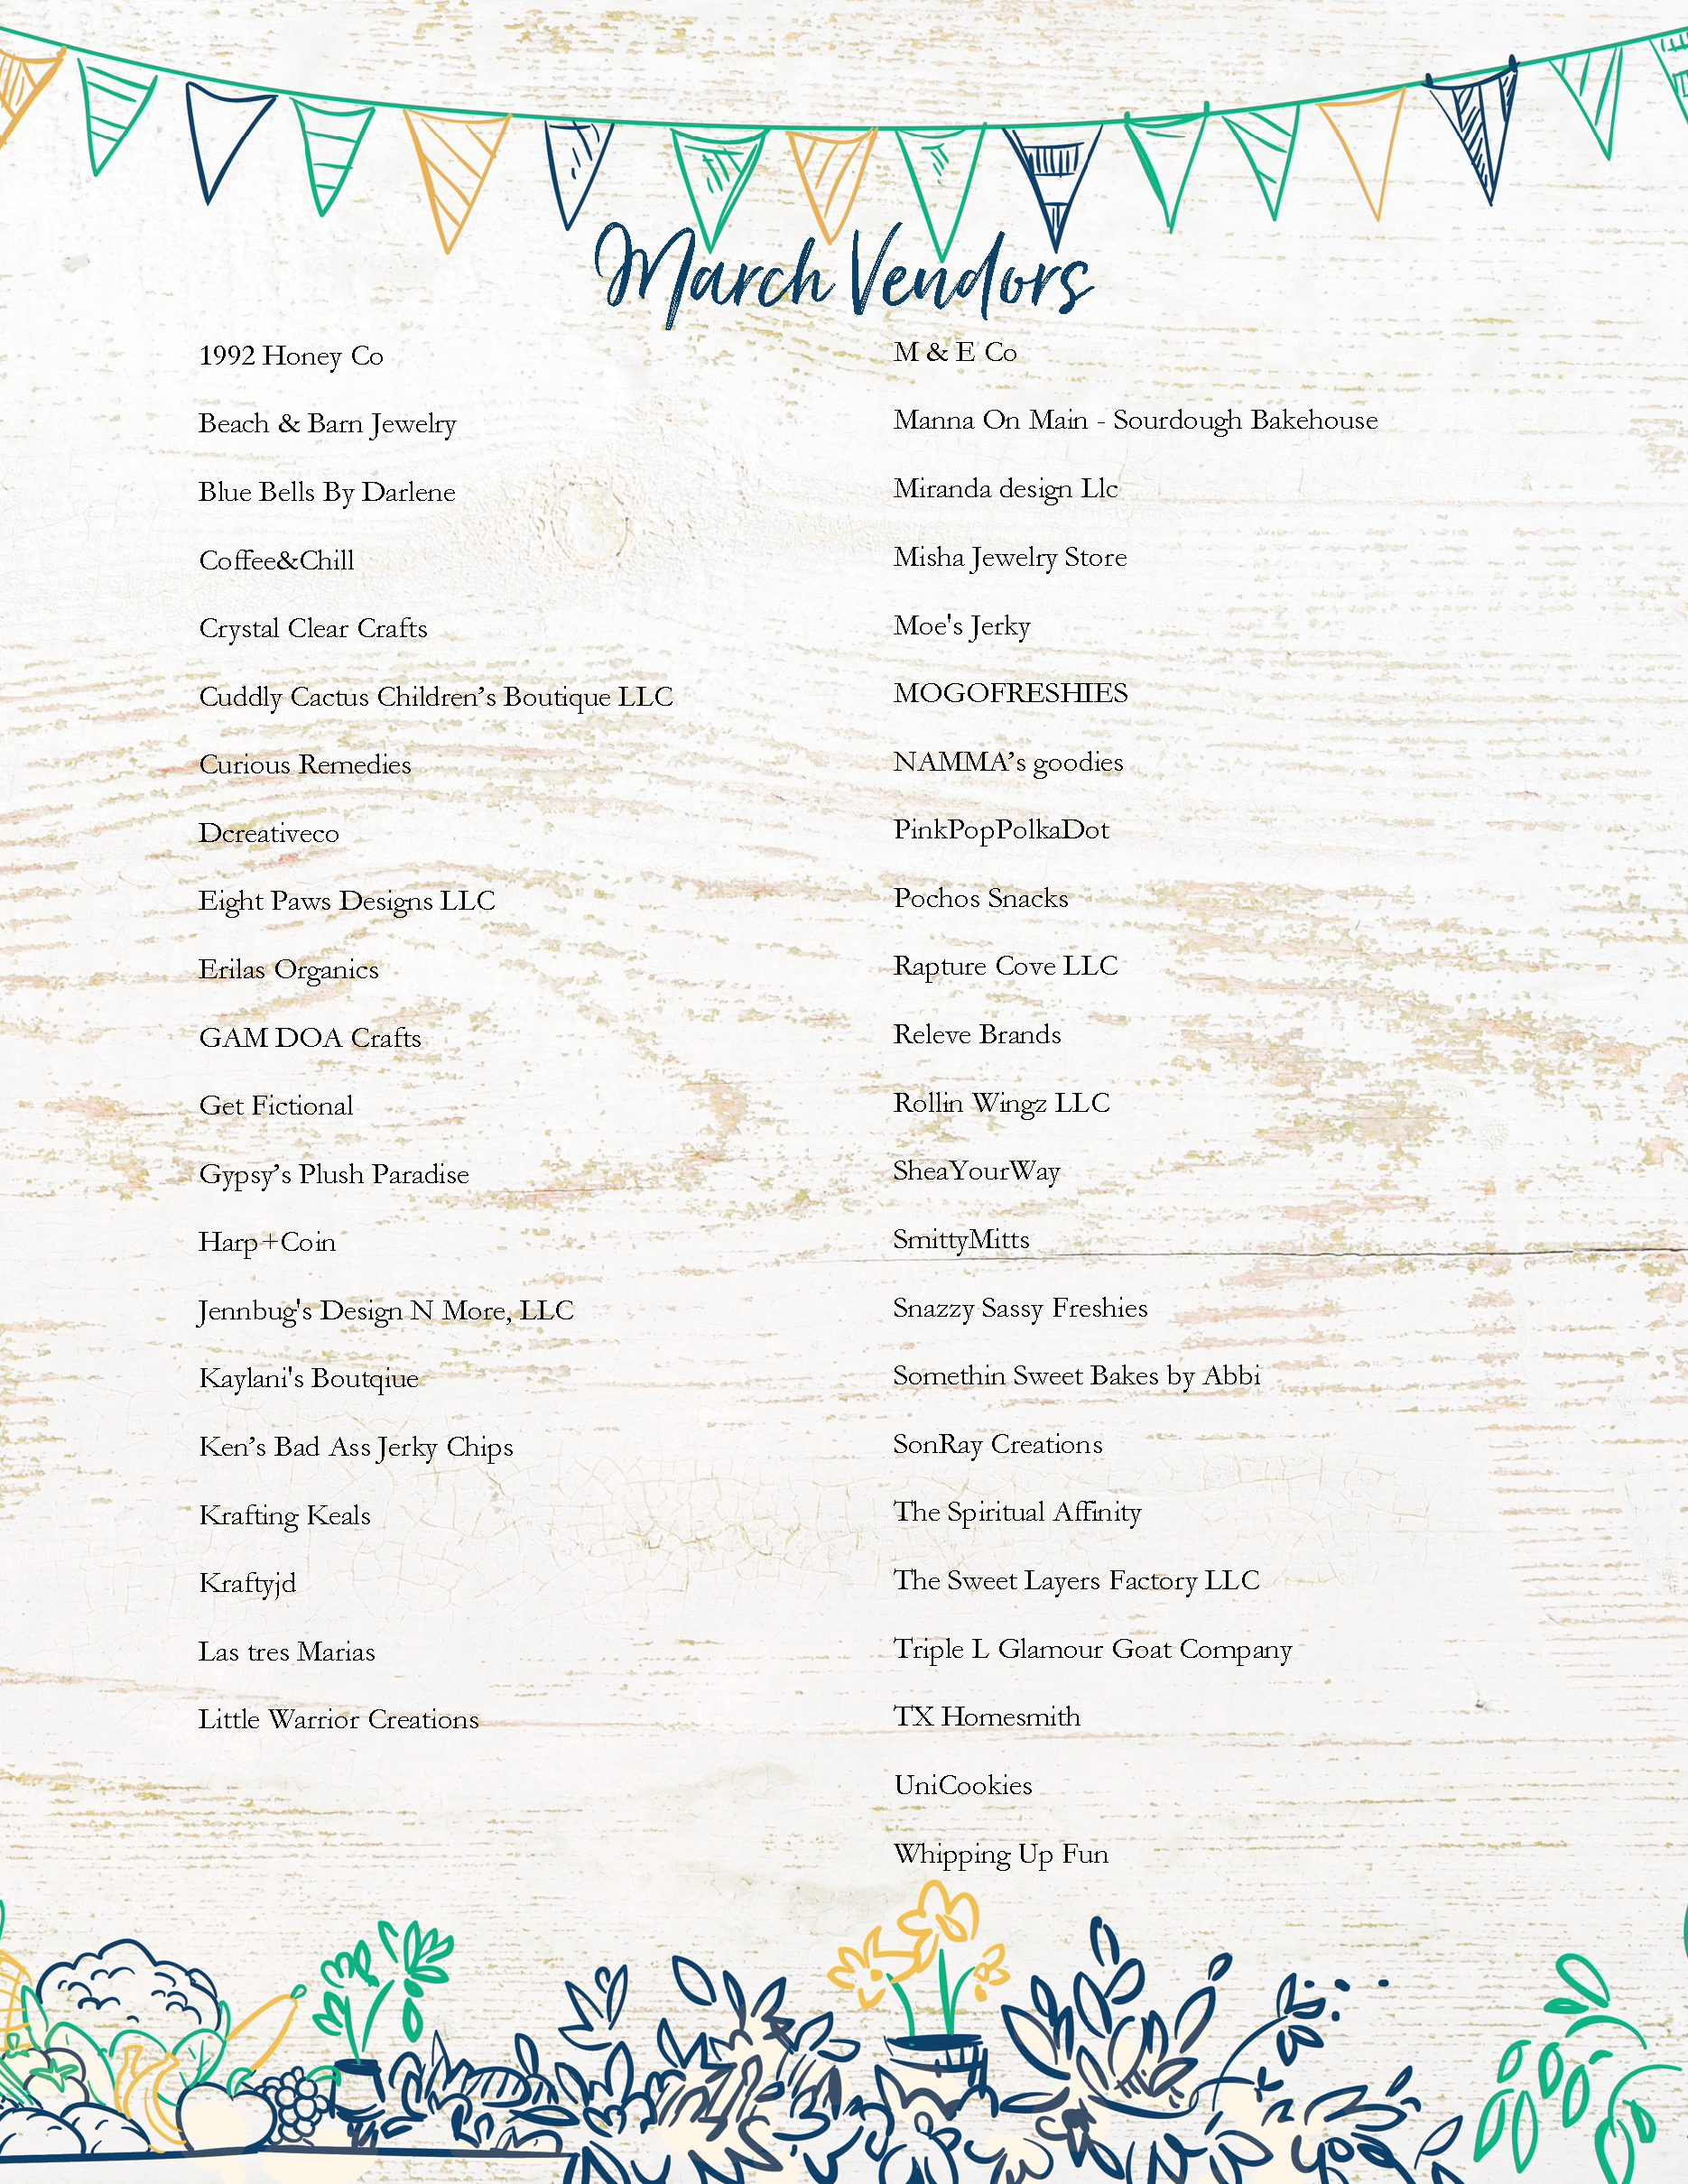 March Vendors
1992 Honey Co
Beach & Barn Jewelry
Blue Bells By Darlene
Coffee&Chill
Crystal Clear Crafts
Cuddly Cactus Children’s Boutique LLC
Curious Remedies
Dcreativeco
Eight Paws Designs LLC
Erilas Organics
GAM DOA Crafts
Get Fictional
Gypsy’s Plush Paradise
Harp+Coin
Jennbug's Design N More, LLC
Kaylani's Boutqiue
Ken’s Bad Ass Jerky Chips
Krafting Keals
Kraftyjd
Las tres Marias
Little Warrior Creations
M & E Co
Manna On Main - Sourdough Bakehouse
Miranda design Llc
Misha Jewelry Store
Moe's Jerky
MOGOFRESHIES
NAMMA’s goodies
PinkPopPolkaDot
Pochos Snacks
Rapture Cove LLC
Releve Brands
Rollin Wingz LLC
SheaYourWay
SmittyMitts
Snazzy Sassy Freshies
Somethin Sweet Bakes by Abbi
SonRay Creations
The Spiritual Affinity
The Sweet Layers Factory LLC
Triple L Glamour Goat Company
TX Homesmith
UniCookies
Whipping Up Fun